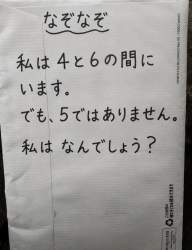 なぞなぞ
私は4と6の間に
います。
でも、5ではありません。
私は なんでしょう?